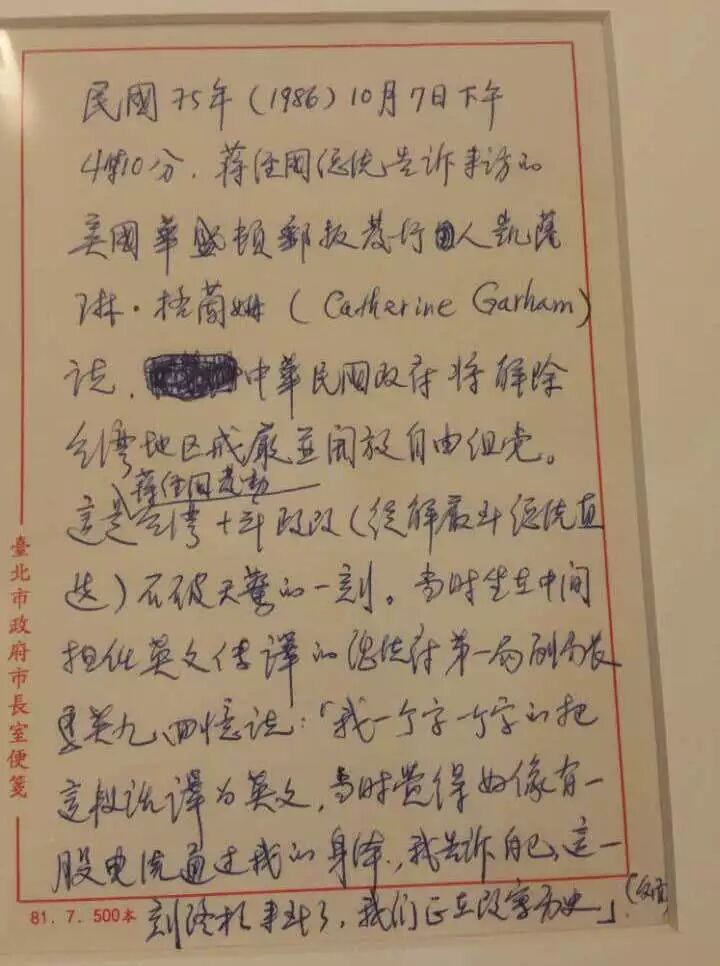 民國75年(1986)10月7日下午
4時10分,蔣经國總统告诉来访的
美國華盛頓郵报發行人凱薩
琳·格蘭姆(Catherine Garham)
说,中華民國政府将解除
台湾地区戒嚴並開放自由组党。
蔣经国發動
這是台湾十年政改(從解嚴到總统直
选)石破天驚的一刻。当时坐在中间
担任英文传譯的總统府第一局副局長
馬英九回憶说:「我一个字一个字的把
這段话譯为英文,当时覺得好像有一
股电流通过我的身体,我告訴自己,這一
刻终於来到了,我们正在改寫历史」(
臺北市政府市長室便箋
81. 7. 500本